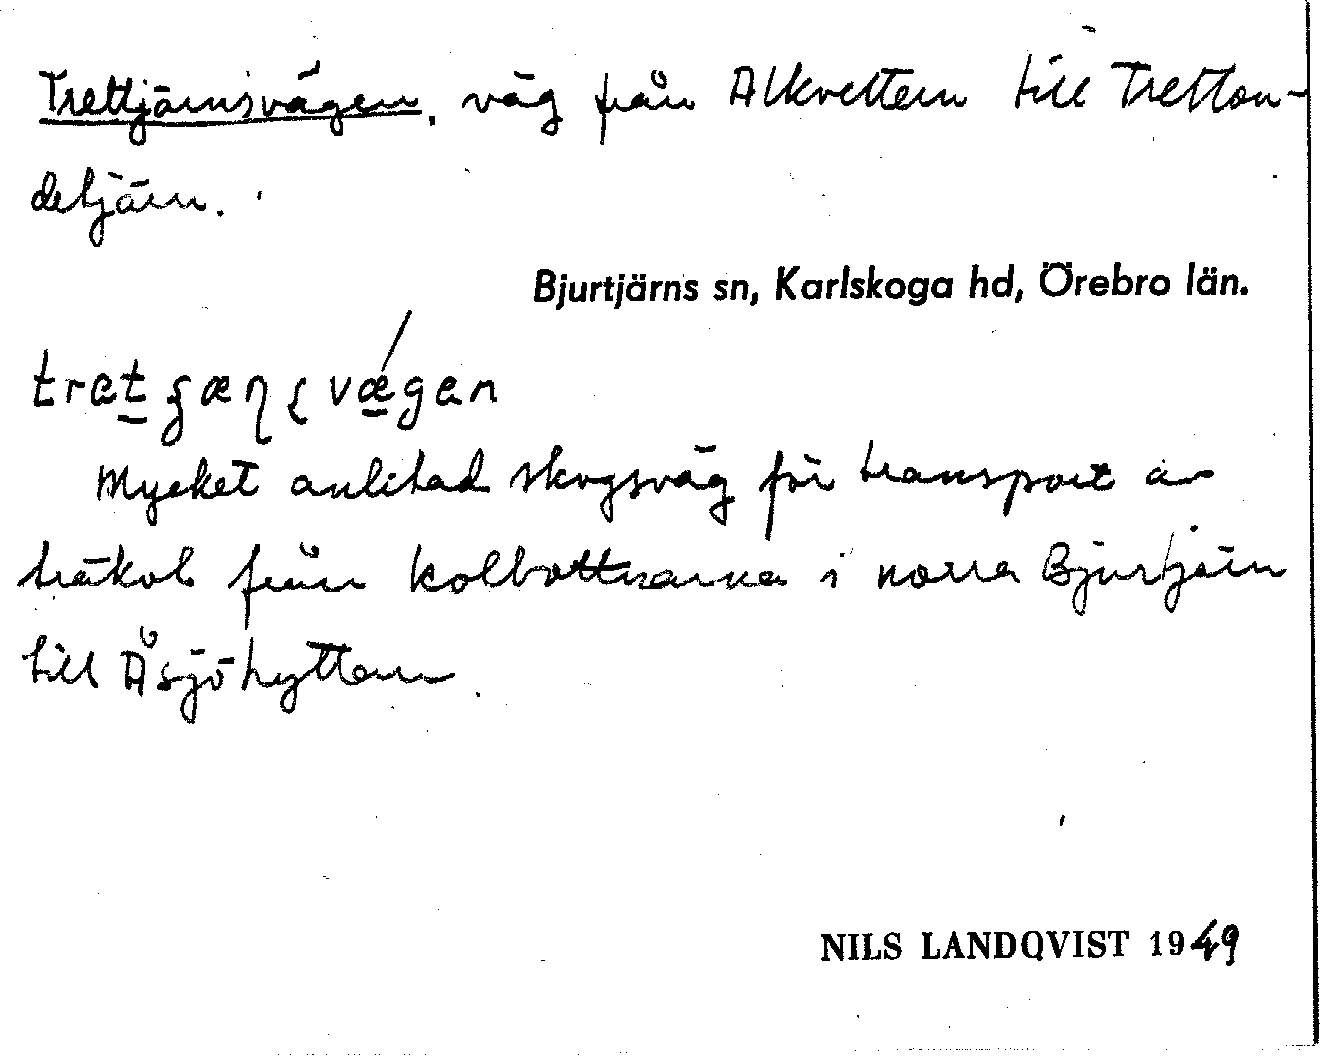 Trettjärnsvägen, väg från Alkvettern till Tretton-
detjärn.
Bjurtjärns sn, Karlskoga hd, Örebro län.
Mycket anlitad skogsväg för transport av
träkol från kolbottnarna i norra Bjurtjärn
till Åsjöhyttan.
NILS LANDQVIST 1949